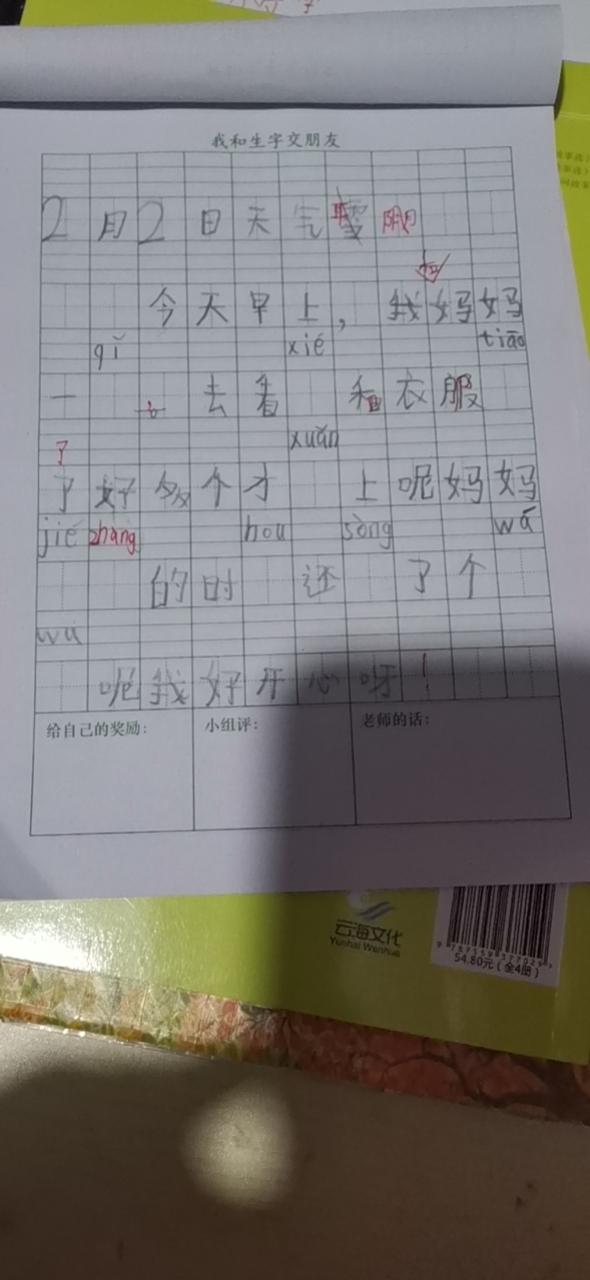 我和生字交朋友
2月2日天气雪 阴
和
今天早上，我妈妈
qǐ xié tiāo
一 去看 和衣服
了 xuǎn
了好多个才 上呢妈妈
jié zhàng hou sòng wá
的时 还 了个
wa
呢我好开心呀！
给自己的奖励： 小组评： 老师的话：
云海文化
Yunhai Wenhua
54.80元（全4册）